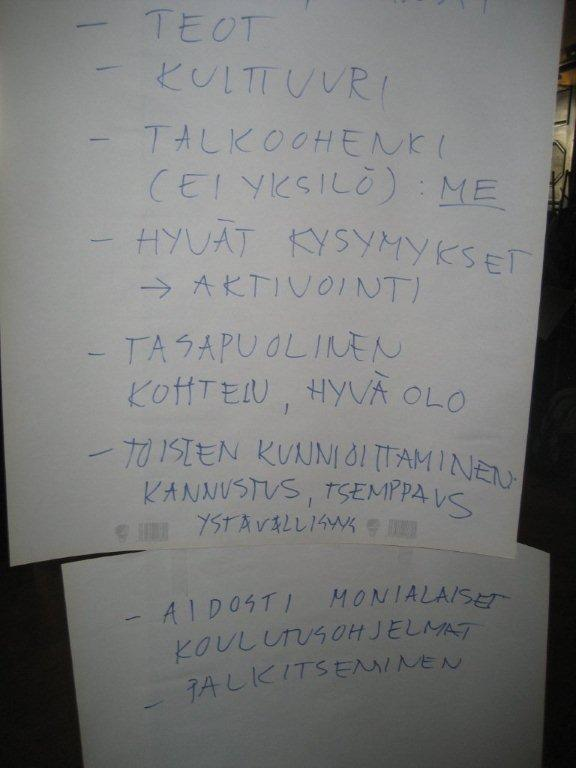 - TEOT
- KULTTUURI
- TALKOOHENKI
(EI YKSILÖ) : ME
- HYVÄT KYSYMYKSET
→ AKTIVOINTI
- TASAPUOLINEN
KOHTELU, HYVÄ OLO
- TOISTEN KUNNIOITTAMINEN:
KANNUSTUS, TSEMPPAUS
YSTÄVÄLLISYYS
- AIDOSTI MONIALAISET
KOULUTUSOHJELMAT
- PALKITSEMINEN